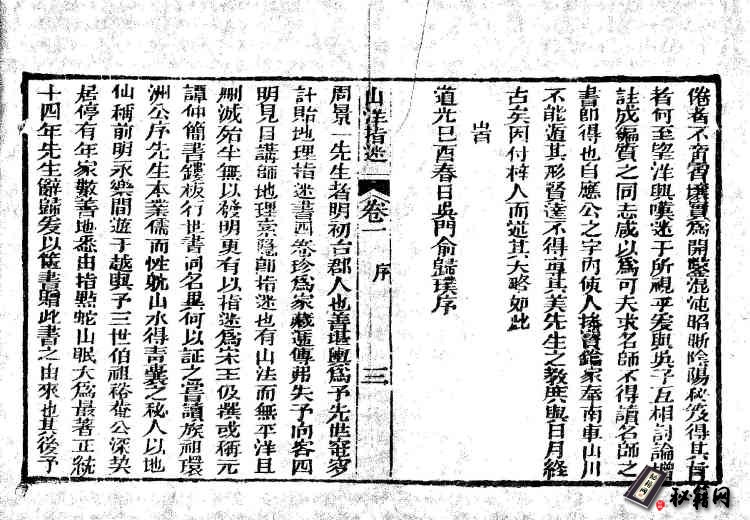 倦者不啻霄壤實為開鑿混沌昭晰陰陽秘笈得其旨
者何至望洋興嘆迷于所視乎爰與吳子互相討論增
註成編質之同志咸以為可夫求名師不得讀名師之
書即得也自應公之宇內使人操寶鑑家奉南車山川
不能遁其形賢達不得專其美先生之教庶與日月經
古矣因付梓人而述其大略如此
時
道光己酉春日吳門俞歸璞序
山洋指迷 卷一 序 三
周景一先生者明初台郡人也善堪輿為予先世菴穸
計貽地理指迷書四卷珍為家藏遞傳弗失予向客四
明見目講師地理索隱師指迷也有山法而無平洋且
刪減殆半無以發明更有以指迷為宋王伋撰或稱元
譚仲簡書鏤板行世書同名異何以証之嘗讀族祖環
洲公序先生本業儒而性躭山水得青囊之秘人以地
仙稱前明永樂間遊于越與予三世伯祖裕菴公深契
居停有年家數善地悉由指點蛇山眠犬為最著正統
十四年先生辭歸爰以篋書贈此書之由來也其後予
秘籍网